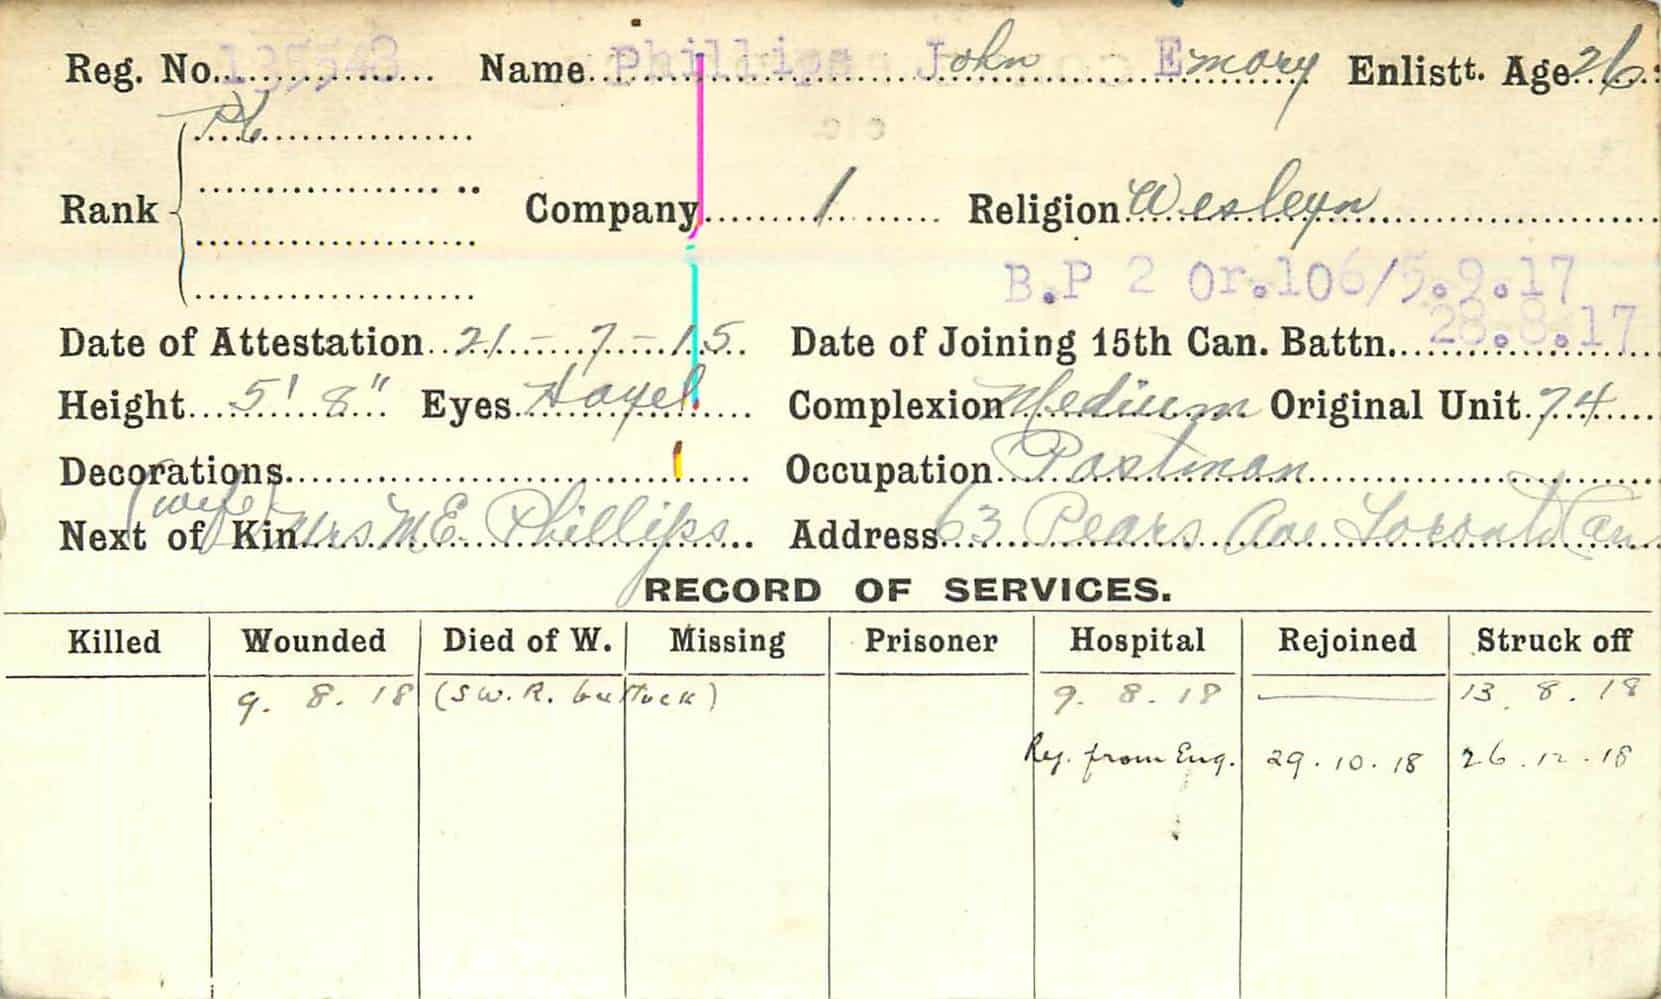 Reg. No. 135543 Name Phillips John Emory Enlistt. Age 26
Pte
Rank Company 1 Religion Wesleyn
B.P 2 Or.106/5.9.17
28.8.17
Date of Attestation 21-7-15 Date of Joining 15th Can. Battn.
Height 5' 8" Eyes Hazel Complexion Medium Original Unit 74
Decorations Occupation Postman
(wife)
Next of Kin Mrs M E Phillips Address 63 Pears Ave Toronto Can
RECORD OF SERVICES.
Killed Wounded Died of W. Missing Prisoner Hospital Rejoined Struck off
9. 8. 18 (S W. R. buttock) 9. 8. 18 13. 8. 18
Rej. from Eng. 29.10.18 26.12.18